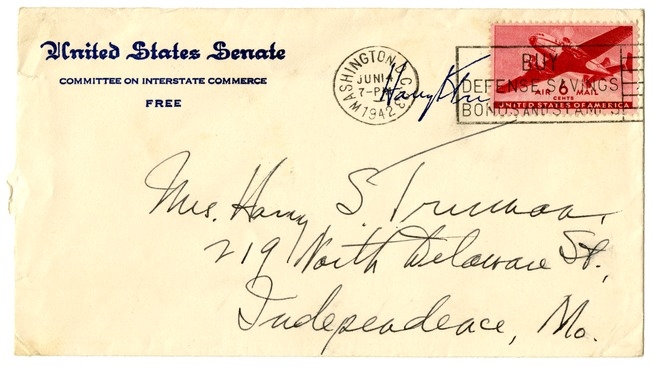 United States Senate
COMMITTEE ON INTERSTATE COMMERCE
FREE
WASHINGTON, D.C.
JUN 14
7-PM
1942
BUY
DEFENSE SAVINGS
BONDS AND STAMPS
AIR 6 MAIL
CENTS
UNITED STATES OF AMERICA
Mrs. Harry S. Truman,
219 North Delaware St.,
Independence, Mo.